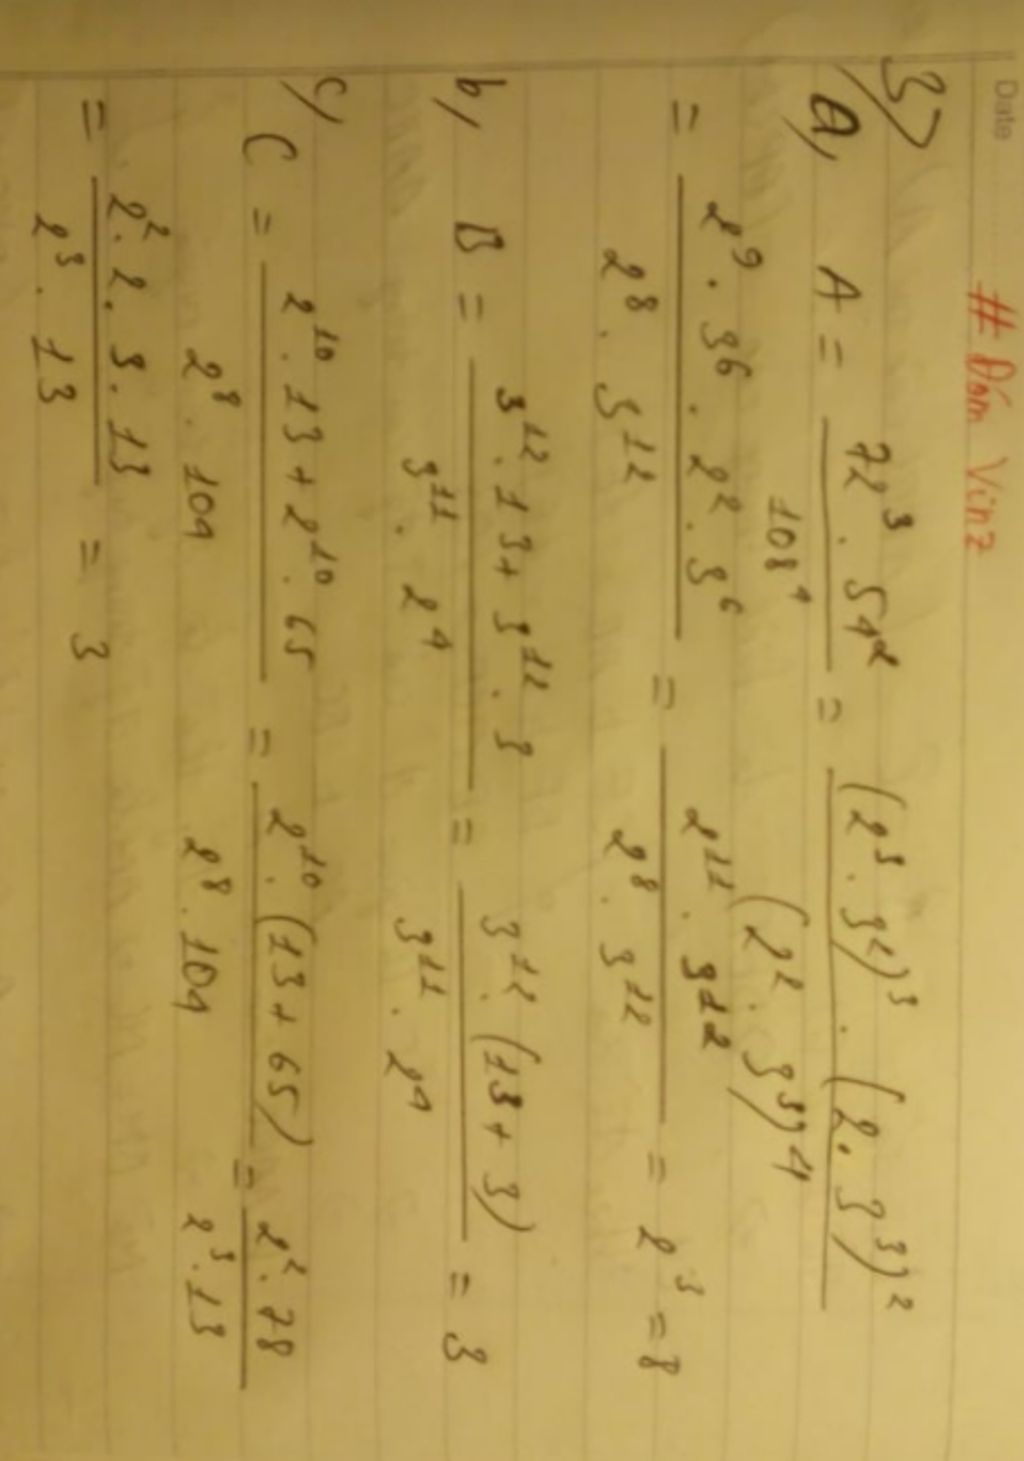 Date
# Dốm Vinz
3)
a, A = 72³ . 54² / 108⁴ = (2³ . 3²)³ . (2 . 3³)² / (2² . 3³)⁴
= 2⁹ . 3⁶ . 2² . 3⁶ / 2⁸ . 3¹² = 2¹¹ . 3¹² / 2⁸ . 3¹² = 2³ = 8
b, B = 3¹² . 13 + 3¹² . 3 / 3¹¹ . 2⁴ = 3¹² . (13 + 3) / 3¹¹ . 2⁴ = 3
c, C = 2¹⁰ . 13 + 2¹⁰ . 65 / 2⁸ . 104 = 2¹⁰ . (13 + 65) / 2⁸ . 104 = 2² . 78 / 2³ . 13
= 2² . 2 . 3 . 13 / 2³ . 13 = 3